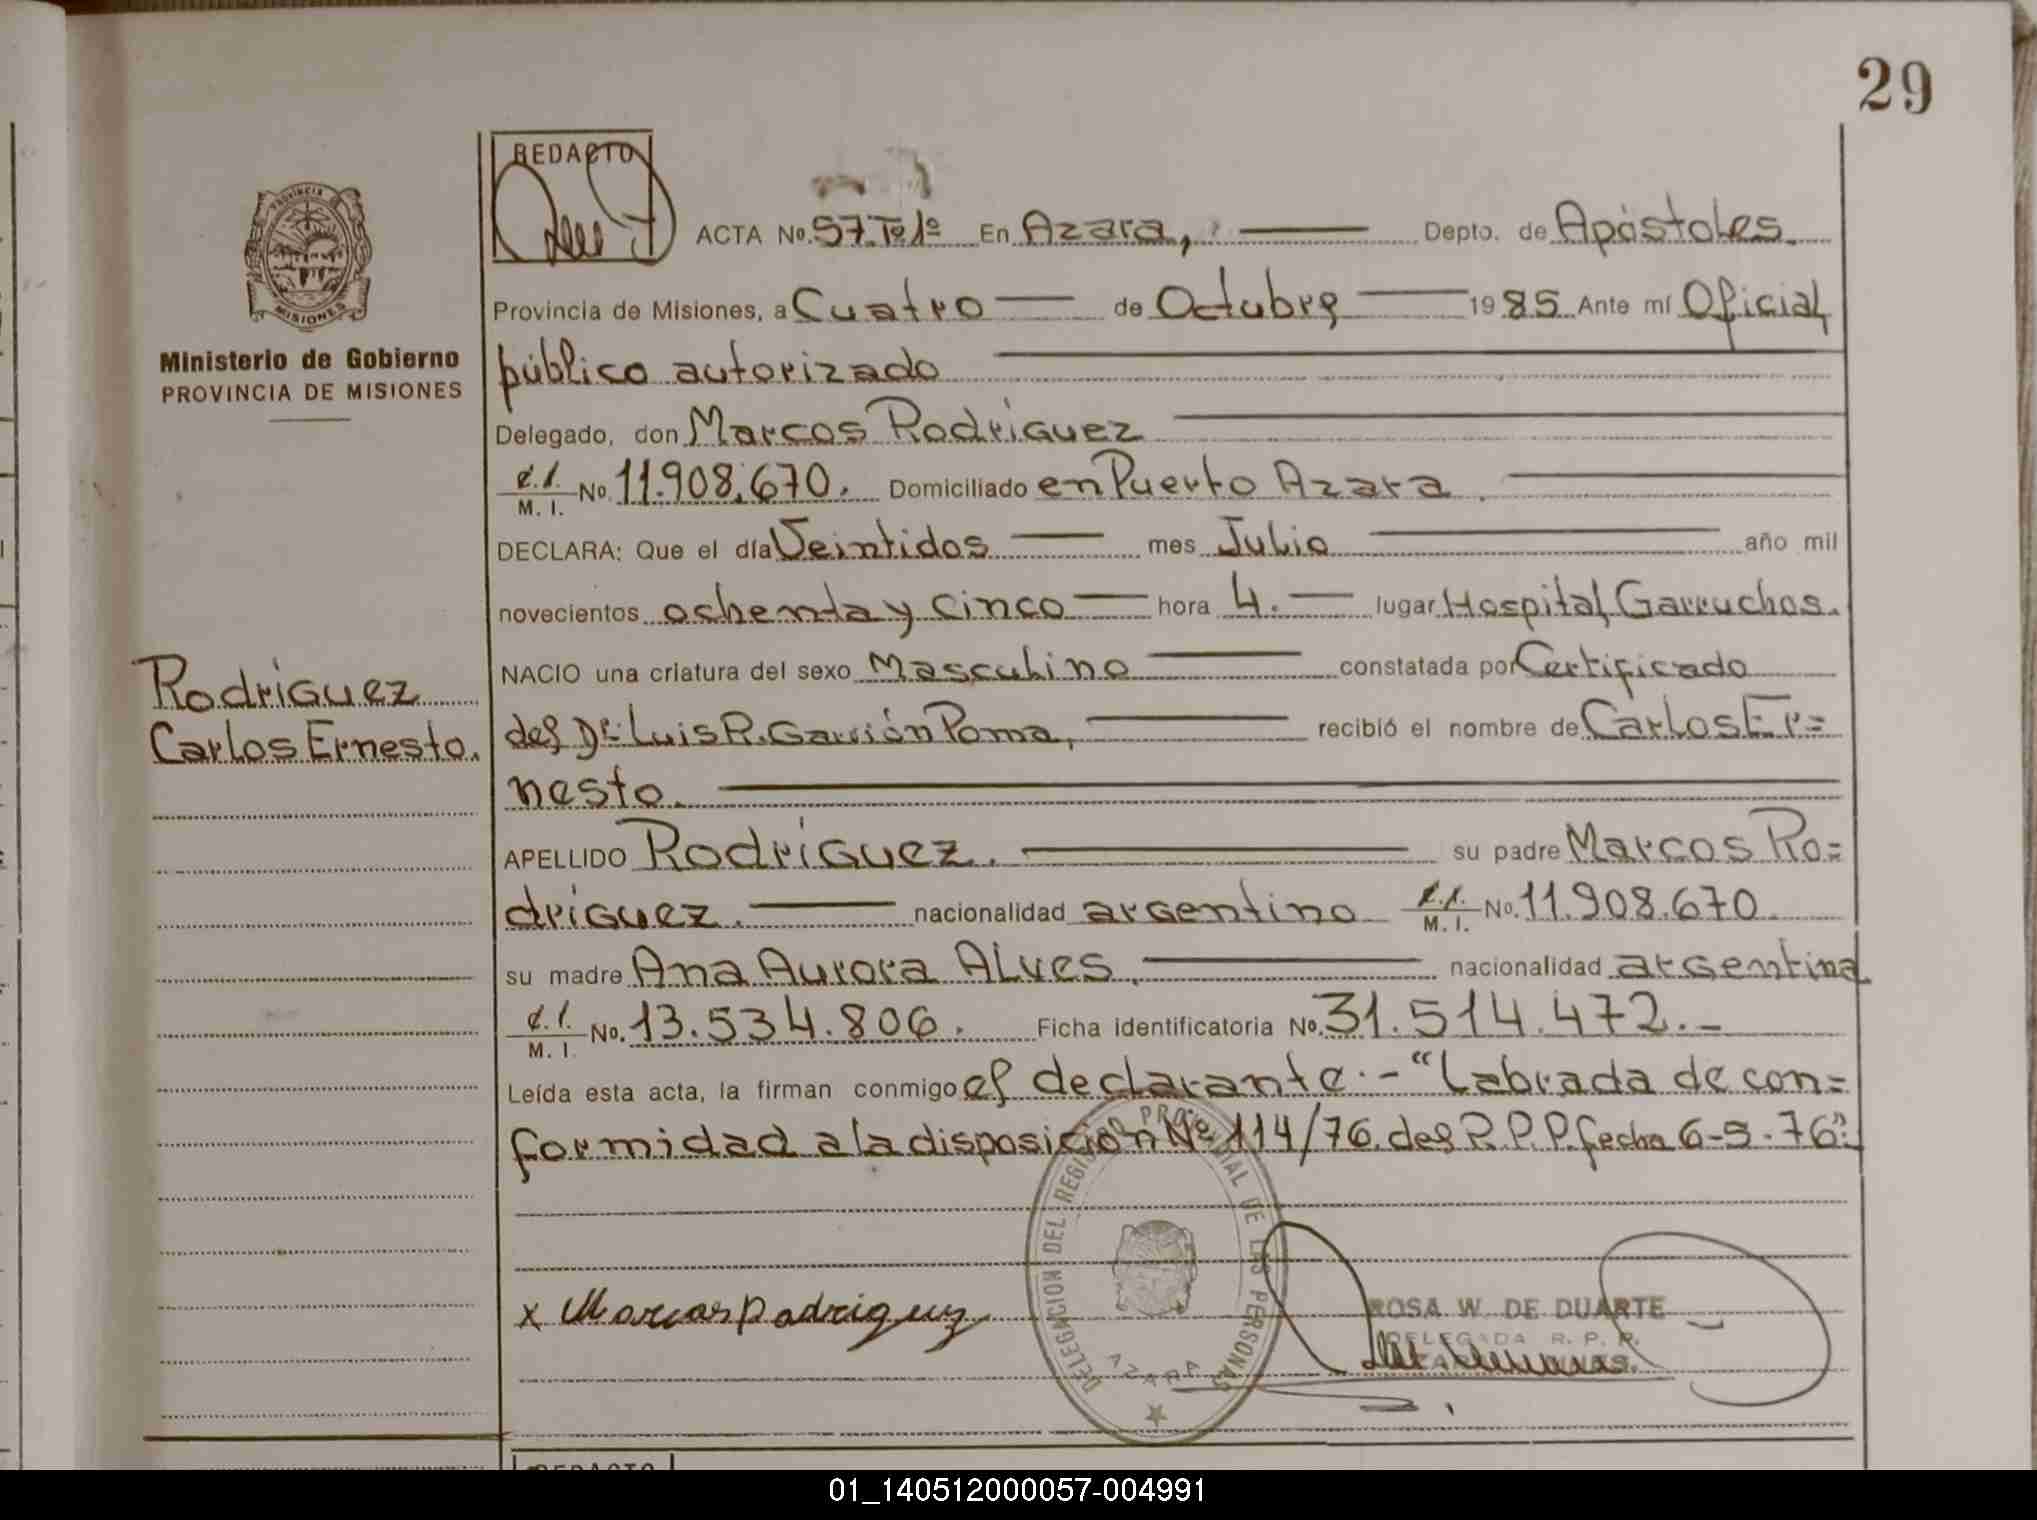 29
REDACTO
PROVINCIA
MISIONES
Ministerio de Gobierno
PROVINCIA DE MISIONES
ACTA No. 57. Tº 1º En Azara, Depto. de Apóstoles.
Provincia de Misiones, a Cuatro de Octubre 1985 Ante mí Oficial
público autorizado
Delegado, don Marcos Rodríguez
C.I. M. I. No. 11.908.670. Domiciliado en Puerto Azara.
DECLARA: Que el día Veintidos mes Julio año mil
novecientos ochenta y cinco hora 4. lugar Hospital Garruchos.
NACIO una criatura del sexo Masculino constatada por Certificado
del Dr. Luis R. Garrión Poma, recibió el nombre de Carlos Er=
nesto.
Rodríguez
Carlos Ernesto.
APELLIDO Rodríguez. su padre Marcos Ro=
dríguez. nacionalidad argentino C.I. M. I. No. 11.908.670
su madre Ana Aurora Alves, nacionalidad argentina
C.I. M. I. No. 13.534.806. Ficha identificatoria No. 31.514.472.-
Leída esta acta, la firman conmigo el declarante.- "Labrada de con=
formidad a la disposición Nº 114/76. del R.P.P. fecha 6-9-76".
DELEGACION DEL REGISTRO PROVINCIAL DE LAS PERSONAS
AZARA
x Marcos Rodriguez
ROSA W. DE DUARTE
DELEGADA R. P. P.
REDACTO
01_140512000057-004991